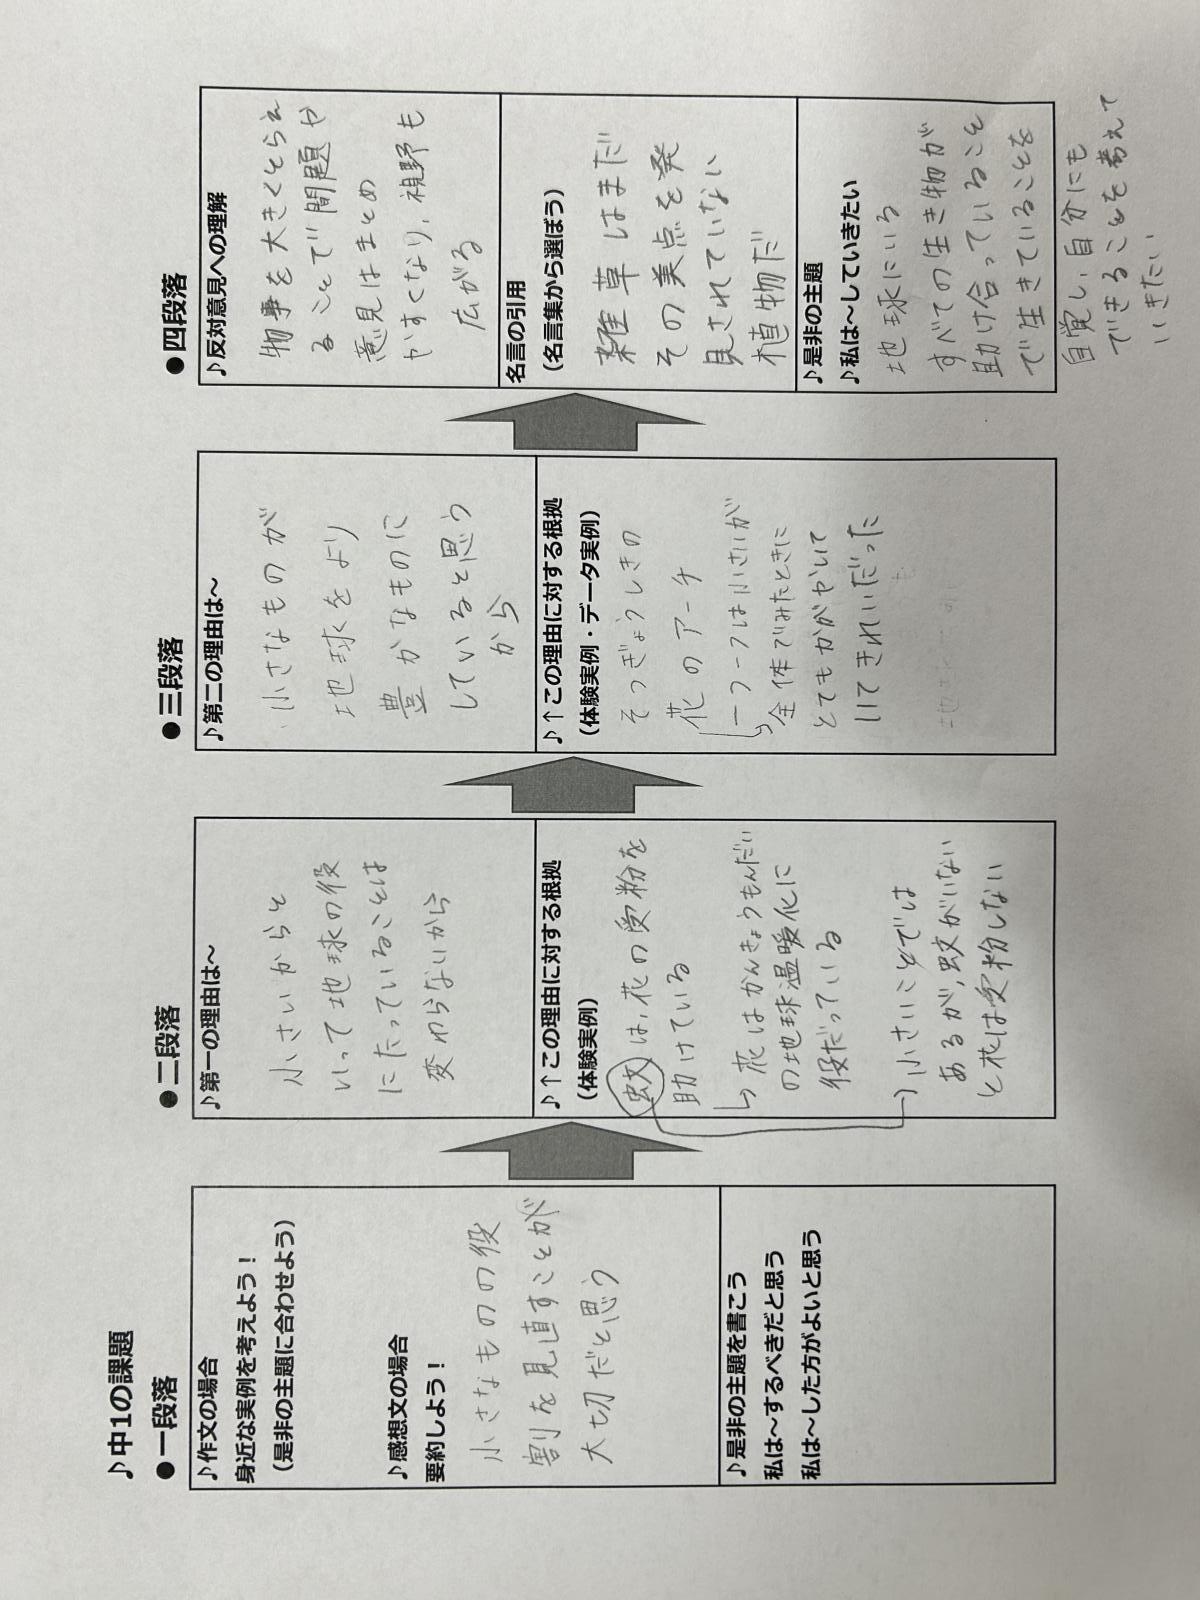 ♪中1の課題
●一段落
♪作文の場合
身近な実例を考えよう！
（是非の主題に合わせよう）
♪感想文の場合
要約しよう！
小さなものの役
割を見直すことが
大切だと思う
♪是非の主題を書こう
私は～するべきだと思う
私は～した方がよいと思う
●二段落
♪第一の理由は～
小さいからと
いって地球の役
にたっていることは
変わらないから
♪↑この理由に対する根拠
（体験実例）
蚊は、花の受粉を
助けている
↳花はかんきょうもんだい
の地球温暖化に
役だっている
→小さいことでは
あるが、蚊がいない
と花は受粉しない
●三段落
♪第二の理由は～
小さなものが
地球をより
豊かなものに
していると思う
から
♪↑この理由に対する根拠
（体験実例・データ実例）
そつぎょうしきの
花のアーチ
↳一つ一つは小さいが
全体でみたときに
とてもかがやいて
いてきれいだった
●四段落
♪反対意見への理解
物事を大きくとらえ
ることで問題や
意見はまとめ
やすくなり、視野も
広がる
名言の引用
（名言集から選ぼう）
雑草はまだ
その美点を発
見されていない
植物だ
♪是非の主題
♪私は～していきたい
地球にいる
すべての生き物が
助け合っていること
で生きていることを
自覚し、自分にも
できることを考えて
いきたい